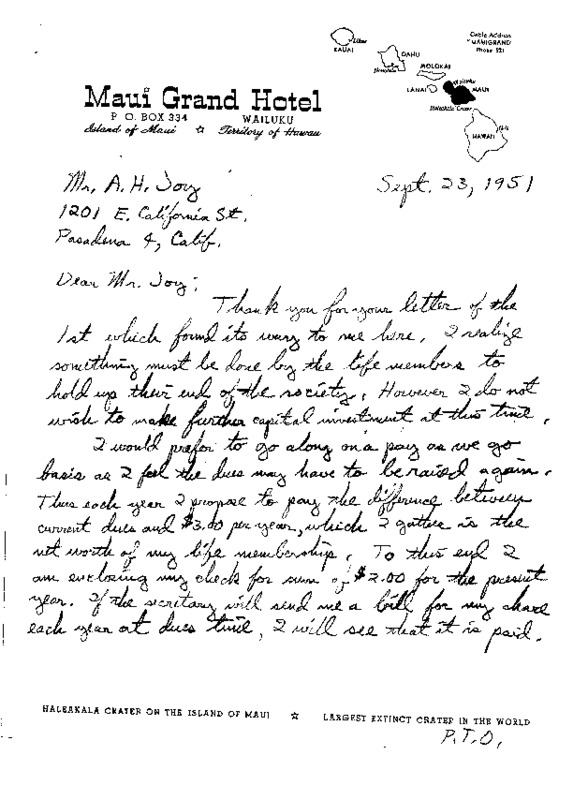 Cable Address
"MAUIGRAND"
Phone 521
KAUAI
OAHU
MOLOKAI
LANAI
MAUI
HAWAII
Maui Grand Hotel
P. O. BOX 334 WAILUKU
Island of Maui ☆ Territory of Hawaii
Sept. 23, 1951
Mr. A. H. Joy
1201 E. California St.
Pasadena 4, Calif.
Dear Mr. Joy:
Thank you for your letter of the
1st which found its way to me here. I realize
something must be done by the life members to
hold up their end of the society. However I do not
wish to make further capital investment at this time.
I would prefer to go along on a pay as we go
basis as I feel the dues may have to be raised again.
Thus each year I propose to pay the difference between
current dues and $3.00 per year, which I gather is the
net worth of my life membership. To this end I
am enclosing my check for sum of $2.00 for the present
year. If the secretary will send me a bill for my share
each year at dues time, I will see that it is paid.
HALEAKALA CRATER ON THE ISLAND OF MAUI ☆ LARGEST EXTINCT CRATER IN THE WORLD
P.T.O.